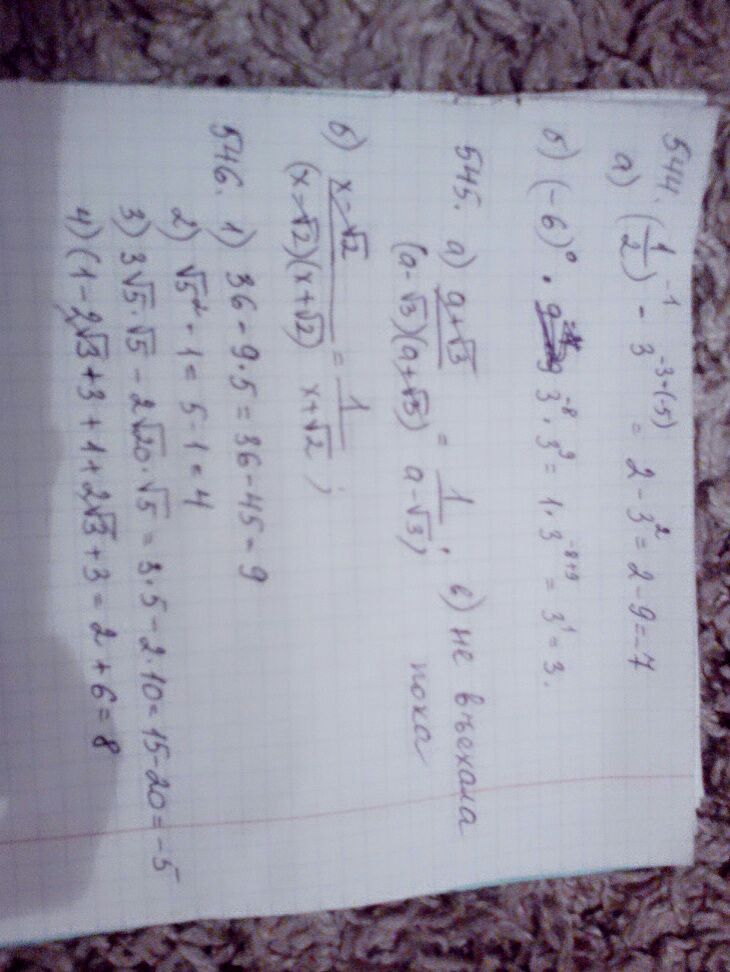 544.
а) (1/2)⁻¹ - 3⁻³⁻⁽⁻⁵⁾ = 2 - 3² = 2 - 9 = -7
б) (-6)⁰ · 3⁻⁸ · 3⁹ = 1 · 3⁻⁸⁺⁹ = 3¹ = 3.
545. а) (a+√3)/((a-√3)(a+√3)) = 1/(a-√3); в) не въехала
пока
б) (x-√2)/((x-√2)(x+√2)) = 1/(x+√2);
546. 1) 36 - 9·5 = 36 - 45 = 9
2) √5² - 1 = 5 - 1 = 4
3) 3√5·√5 - 2√20·√5 = 3·5 - 2·10 = 15 - 20 = -5
4) (1 - 2√3 + 3 + 1 + 2√3 + 3 = 2 + 6 = 8